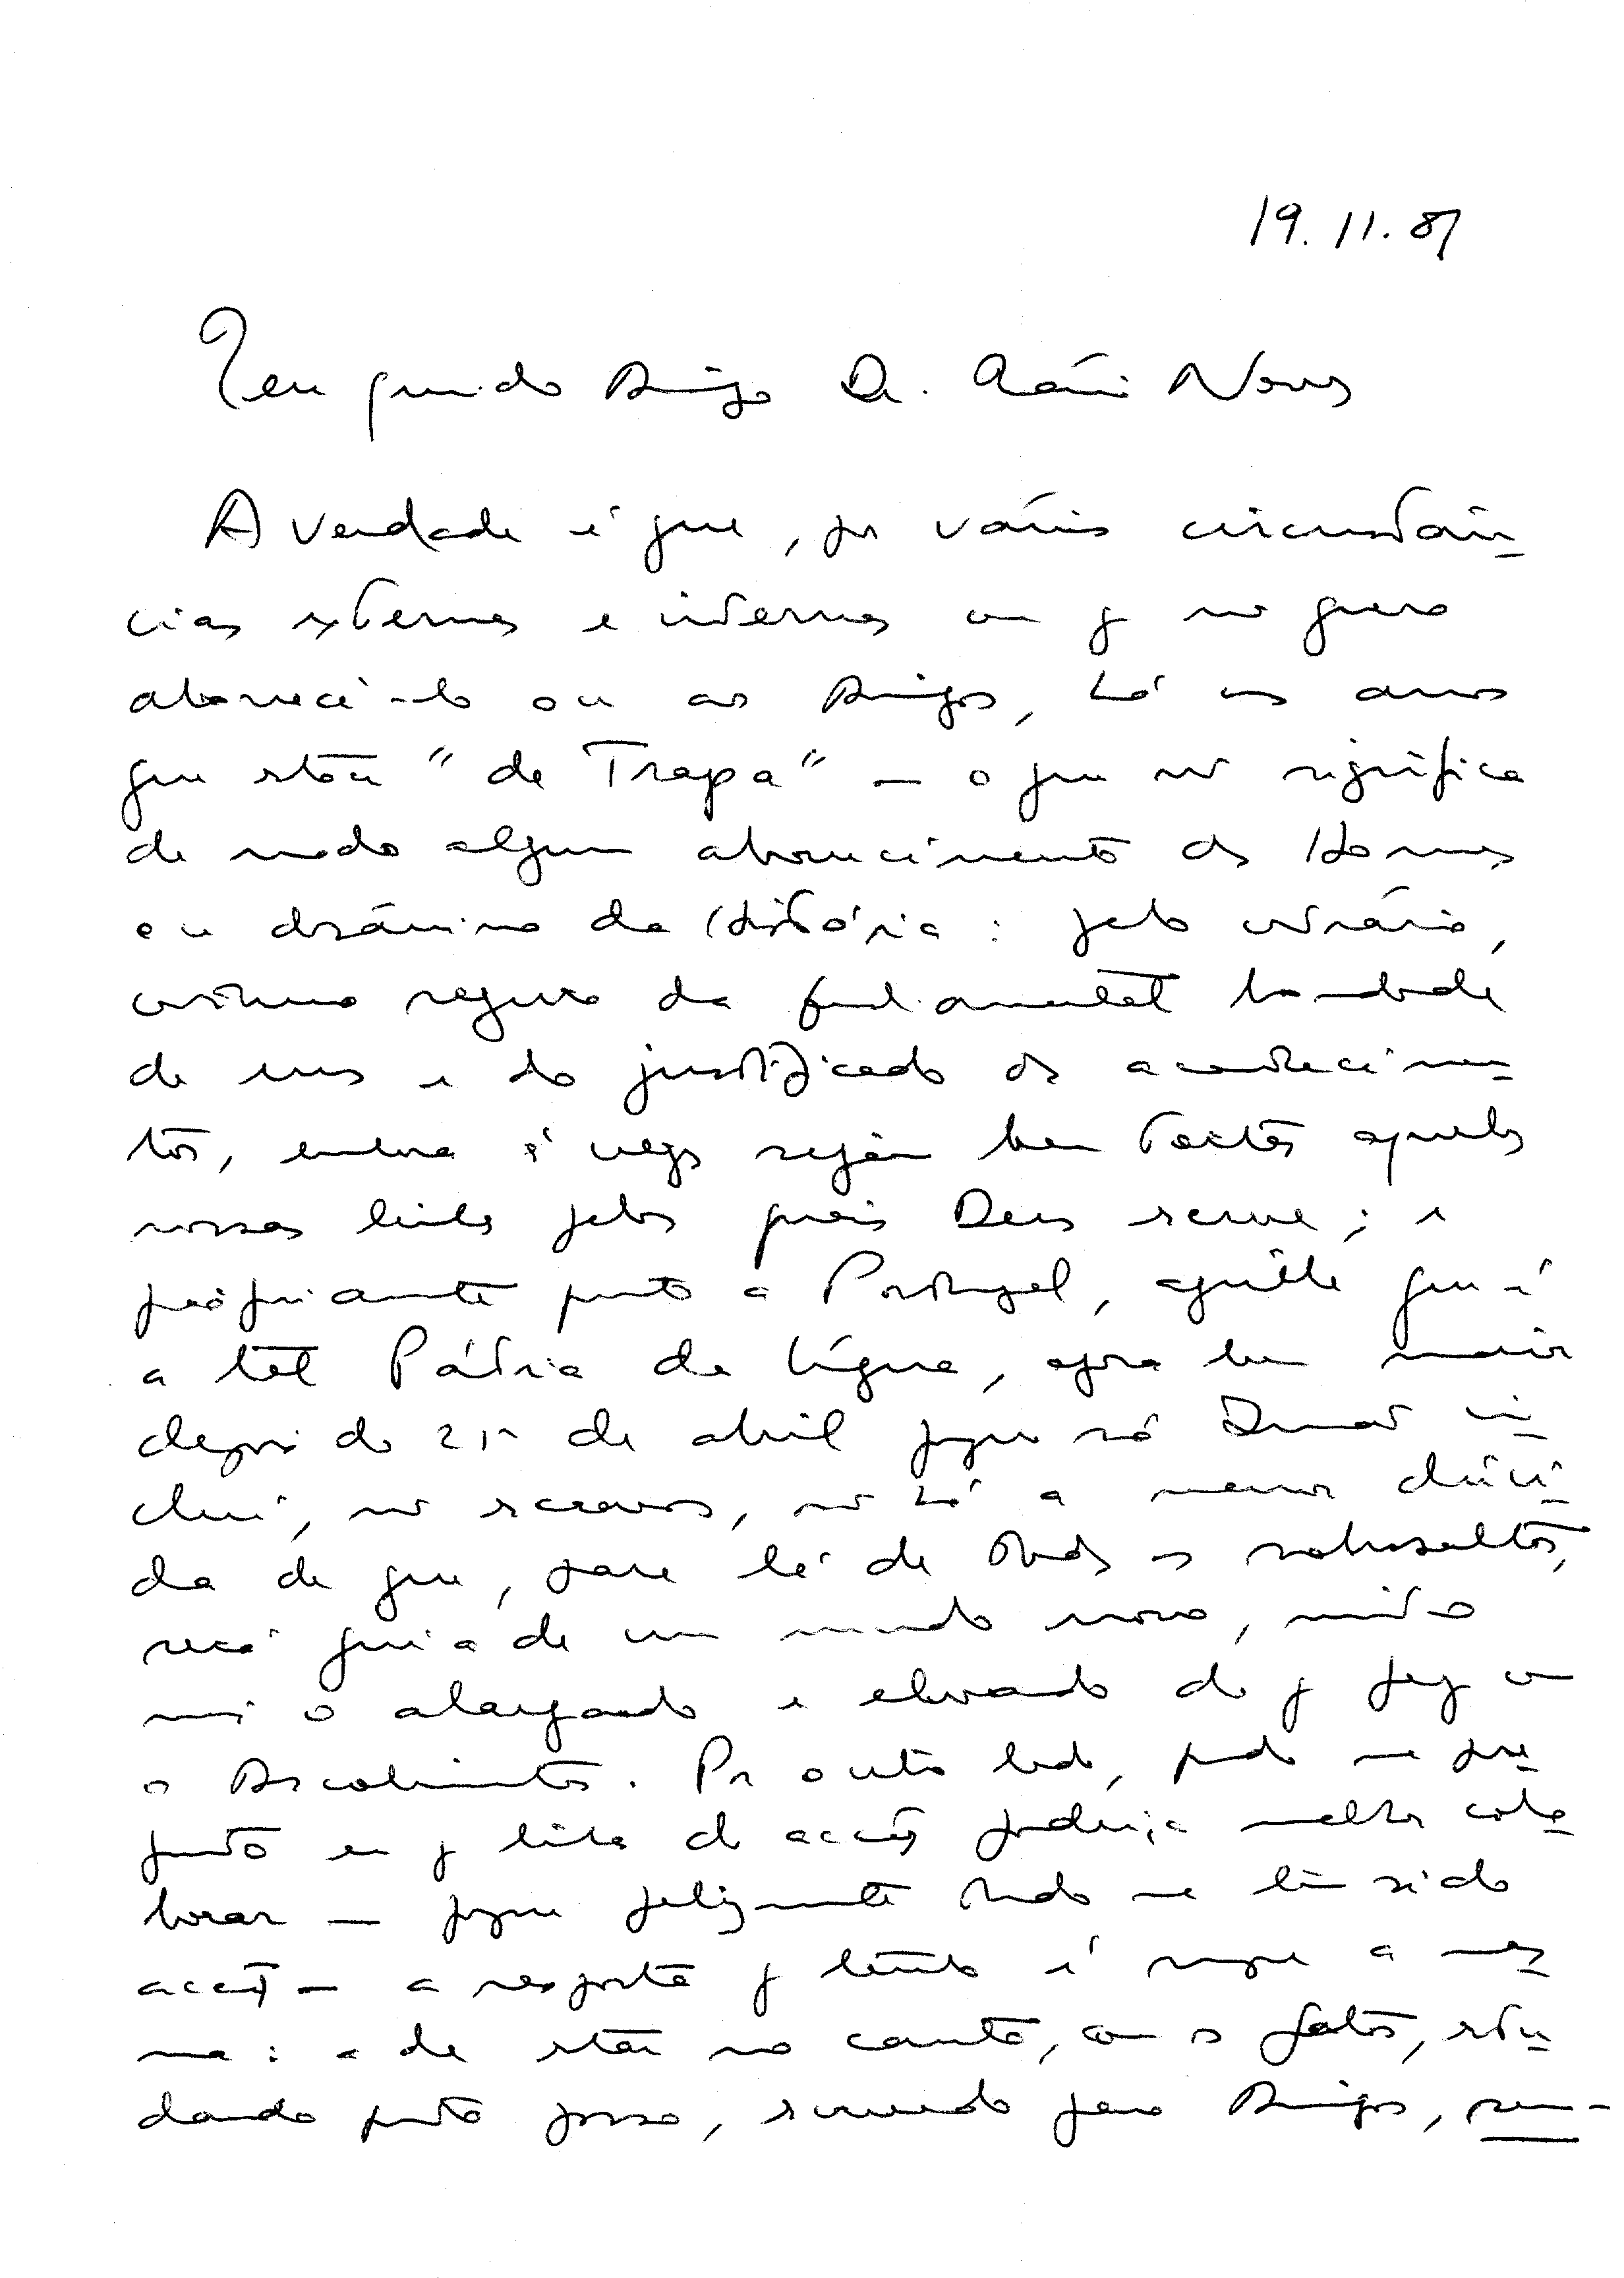 19.11.87
Meu querido Amigo Dr. Mário Neves
A verdade é que, por várias circunstân-
cias externas e internas com q não quero
aborrecê-lo ou aos Amigos, há uns anos
que estou "de Trapa" — o que não significa
de modo algum aborrecimento dos Homens
ou desânimo da História: pelo contrário,
continuo seguro da fundamental bondade
de uns e do justificado dos acontecimen-
tos, embora às vezes sejam bem tortas aquelas
nossas linhas pelas quais Deus escreve; e
propriamente quanto a Portugal, aquele que é
a tal Pátria da Língua, agora bem maior
depois do 25 de abril porque só Timor in-
clui, não escravos, não há a menor dúvi-
da de que, para lá de todos os sobressaltos,
será guia de um mundo novo, muito
mais alargado e elevado do q fez com
os Descobrimentos. Por outro lado, quando me per-
gunto em q linha de acção poderia melhor cola-
borar — porque felizmente tudo me tem sido
acção — a resposta q tenho é sempre a mes-
ma: a de estar no canto, com os gatos, estu-
dando quanto posso, escrevendo para Amigos, sem-